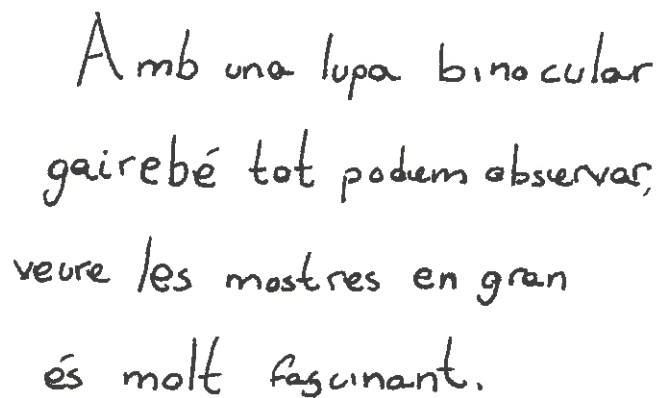 Amb una lupa binocular
gairebé tot podem observar,
veure les mostres en gran
és molt fascinant.